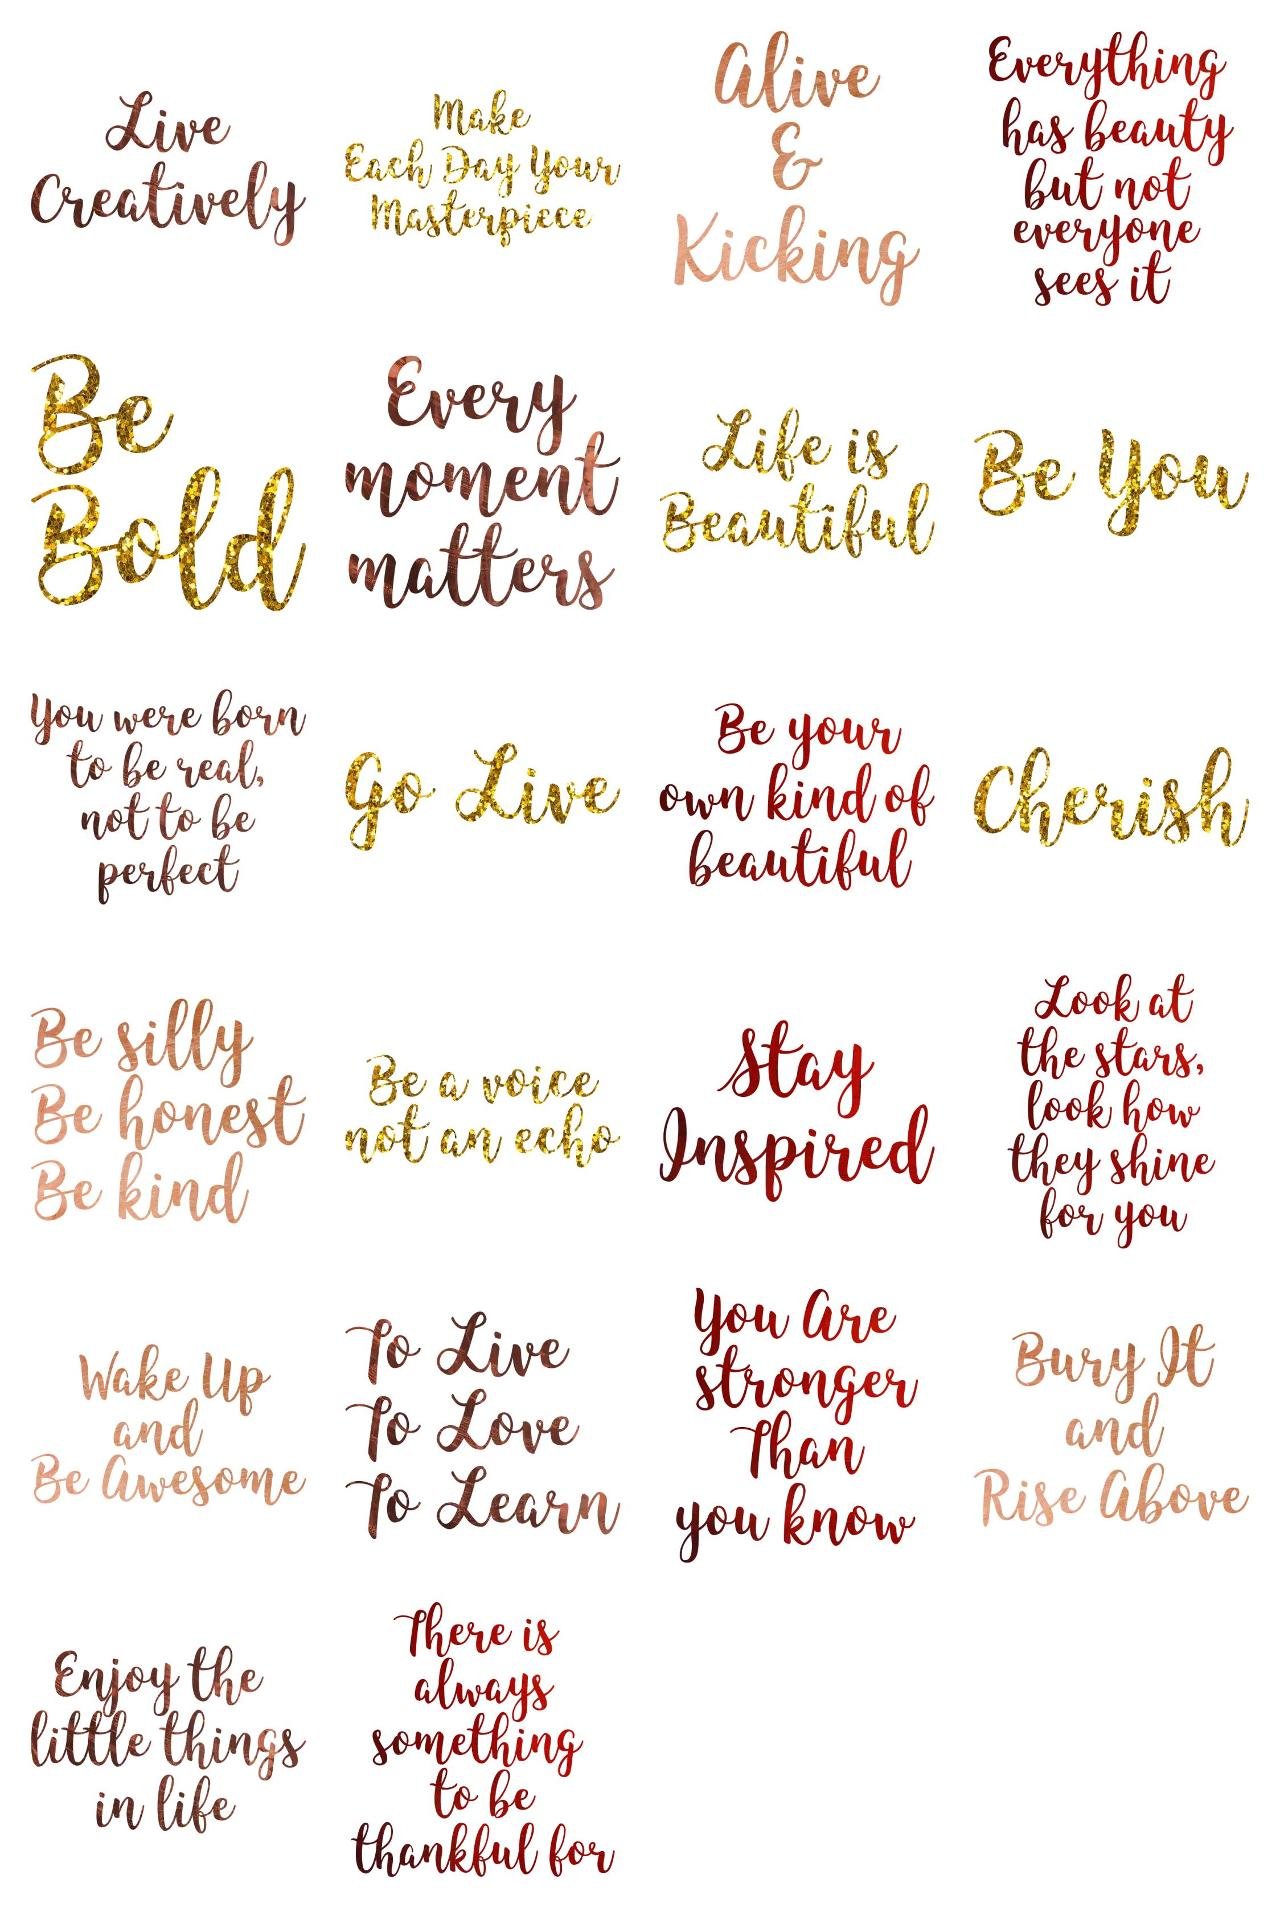 Live
Creatively
Make
Each Day Your
Masterpiece
Alive
&
Kicking
Everything
has beauty
but not
everyone
sees it
Be
Bold
Every
moment
matters
Life is
Beautiful
Be You
You were born
to be real,
not to be
perfect
Go Live
Be your
own kind of
beautiful
Cherish
Be silly
Be honest
Be kind
Be a voice
not an echo
Stay
Inspired
Look at
the stars,
look how
they shine
for you
Wake Up
and
Be Awesome
To Live
To Love
To Learn
You Are
stronger
Than
you know
Bury It
and
Rise Above
Enjoy the
little things
in life
There is
always
something
to be
thankful for